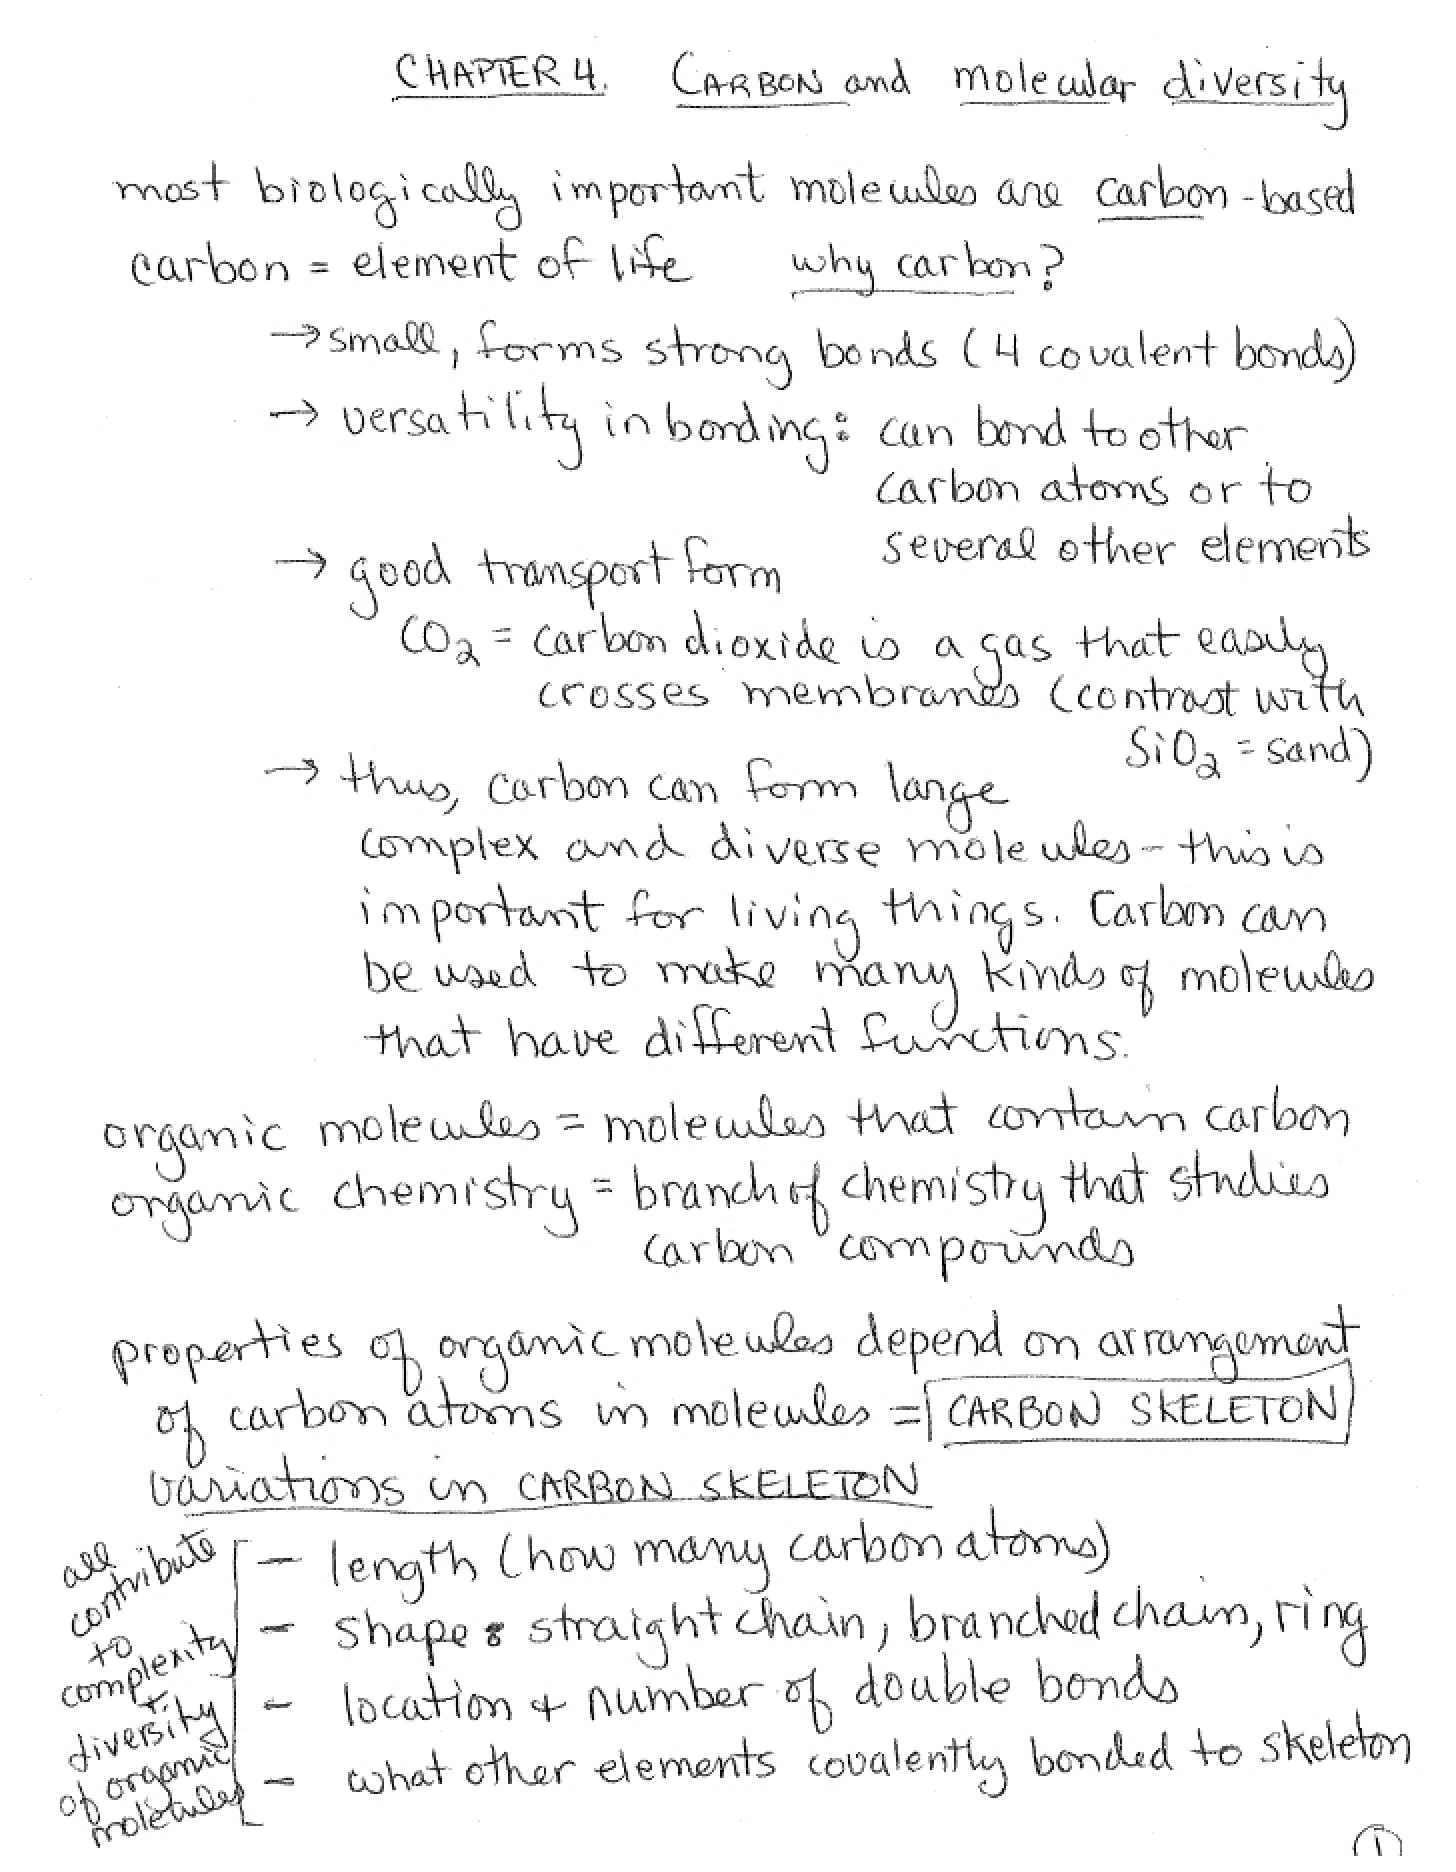 CHAPTER 4. CARBON and molecular diversity
most biologically important molecules are carbon-based
carbon = element of life why carbon?
→ small, forms strong bonds (4 covalent bonds)
→ versatility in bonding: can bond to other
carbon atoms or to
several other elements
→ good transport form
CO₂ = carbon dioxide is a gas that easily
crosses membranes (contrast with
SiO₂ = sand)
→ thus, carbon can form large
complex and diverse molecules - this is
important for living things. Carbon can
be used to make many kinds of molecules
that have different functions.
organic molecules = molecules that contain carbon
organic chemistry = branch of chemistry that studies
carbon compounds
properties of organic molecules depend on arrangement
of carbon atoms in molecules = CARBON SKELETON
variations in CARBON SKELETON
all
contribute
to
complexity
+
diversity
of organic
molecules
- length (how many carbon atoms)
- shape: straight chain, branched chain, ring
- location + number of double bonds
- what other elements covalently bonded to skeleton
1